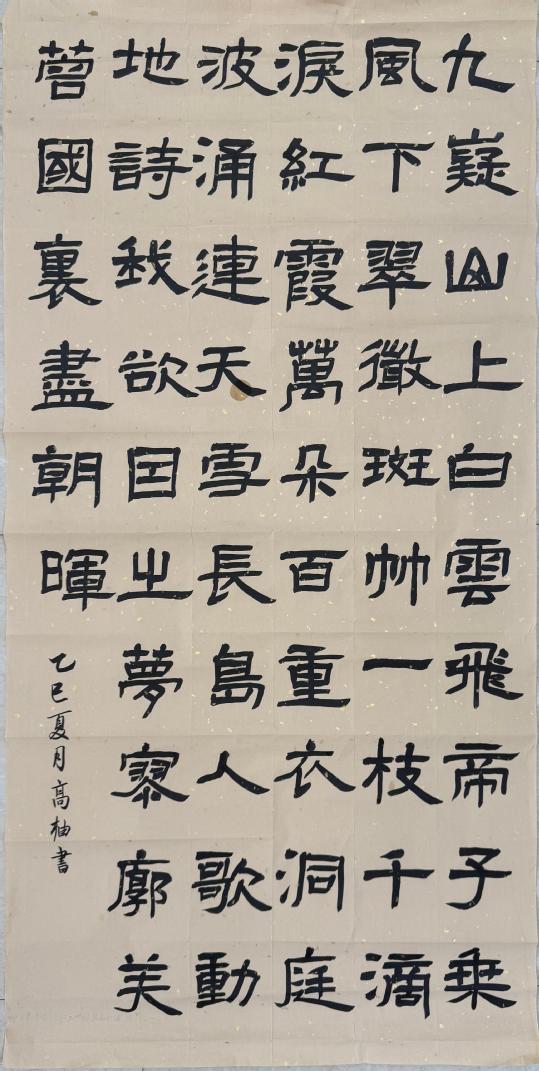 九嶷山上白雲飛帝子乘
風下翠微斑竹一枝千滴
淚紅霞萬朵百重衣洞庭
波涌連天雪長島人歌動
地詩我欲因之夢寥廓芙
蓉國裏盡朝暉
乙巳夏月高柚書